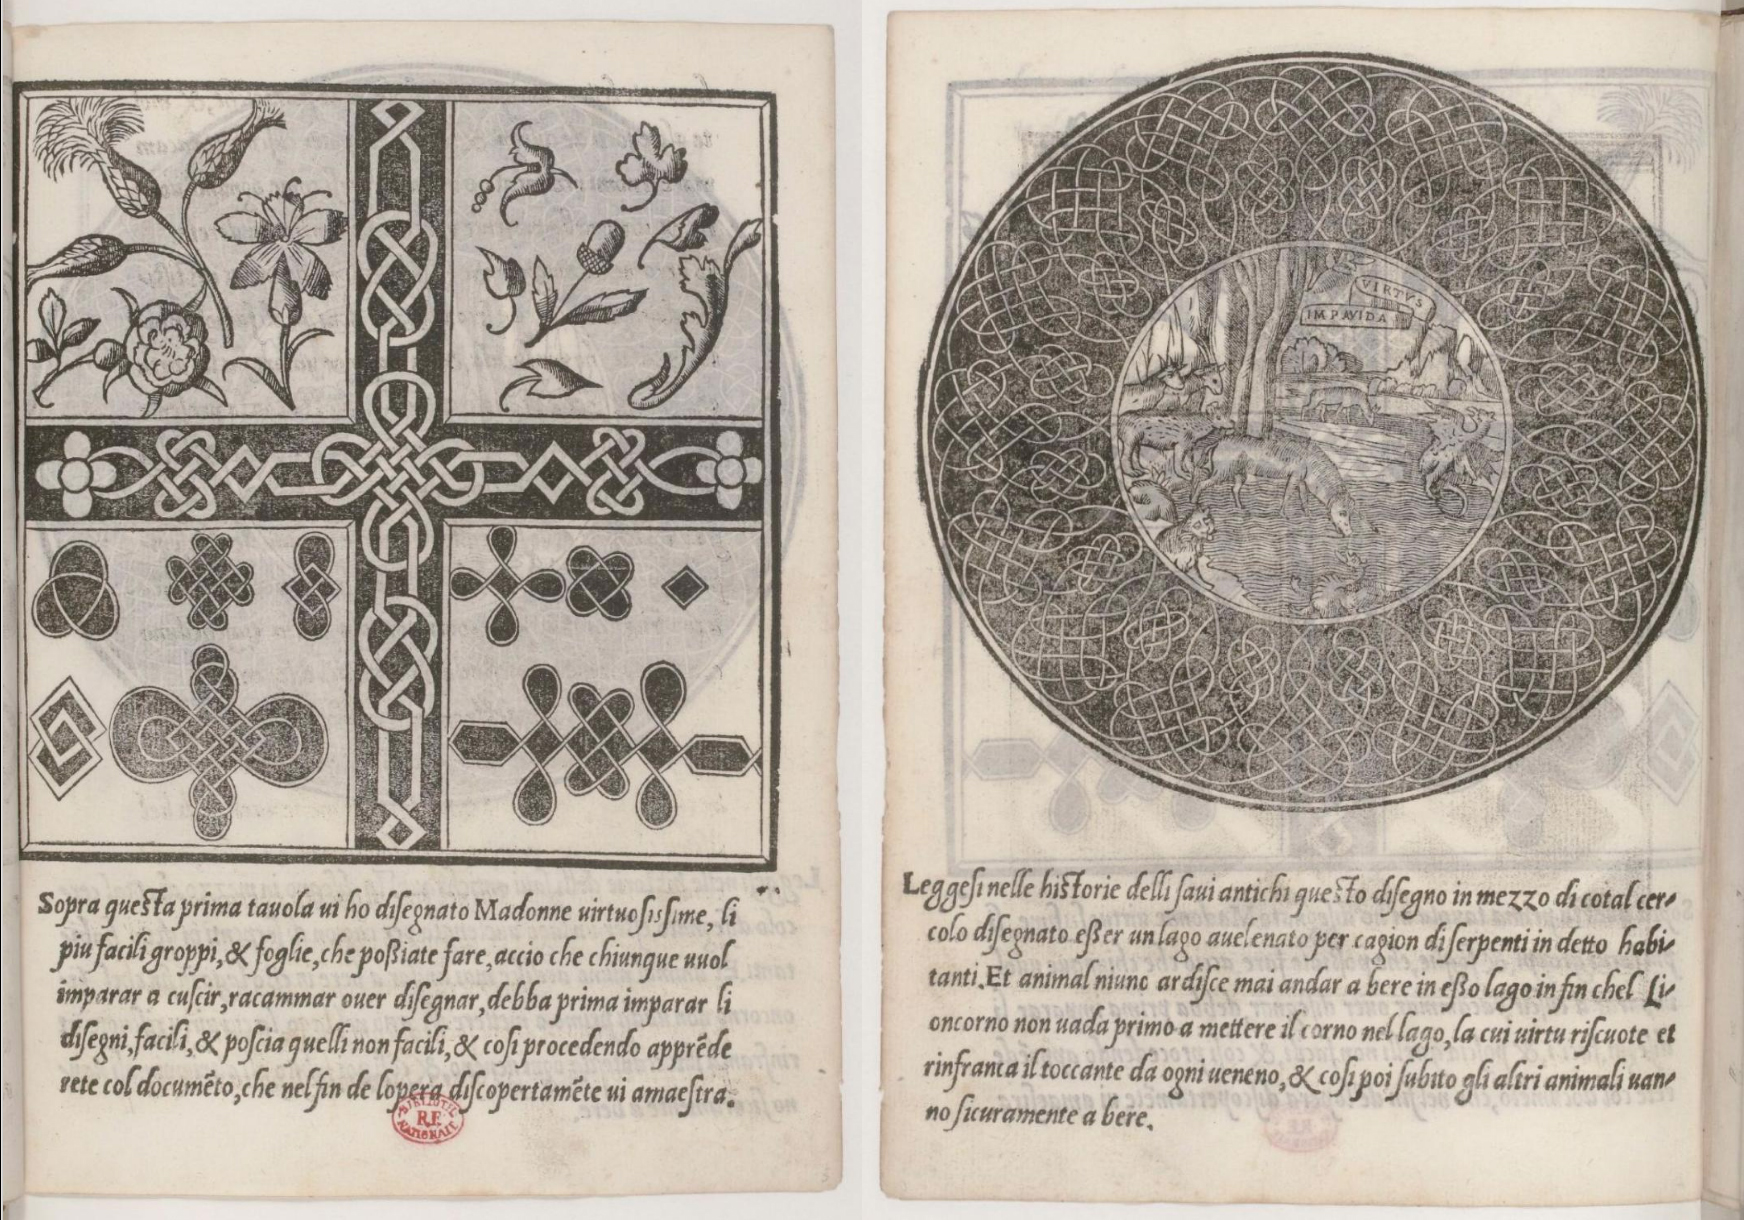 Sopra questa prima tauola ui ho disegnato Madonne uirtuosissime, li
piu facili groppi, & foglie, che poßiate fare, accio che chiunque uuol
imparar a cuscir, racammar ouer disegnar, debba prima imparar li
disegni, facili, & poscia quelli non facili, & cosi procedendo apprẽde
rete col documẽto, che nel fin de lopera discopertamẽte ui amaestra.
BIBLIOTH
R.F.
NATIONALE
VIRTVS
IMPAVIDA
Leggesi nelle historie delli saui antichi questo disegno in mezzo di cotal cer-
colo disegnato eßer un lago auelenato per cagion di serpenti in detto habi-
tanti. Et animal niuno ardisce mai andar a bere in eßo lago in fin chel Li-
oncorno non uada primo a mettere il corno nel lago, la cui uirtu riscuote et
rinfranca il toccante da ogni ueneno, & cosi poi subito gli altri animali uan-
no sicuramente a bere.